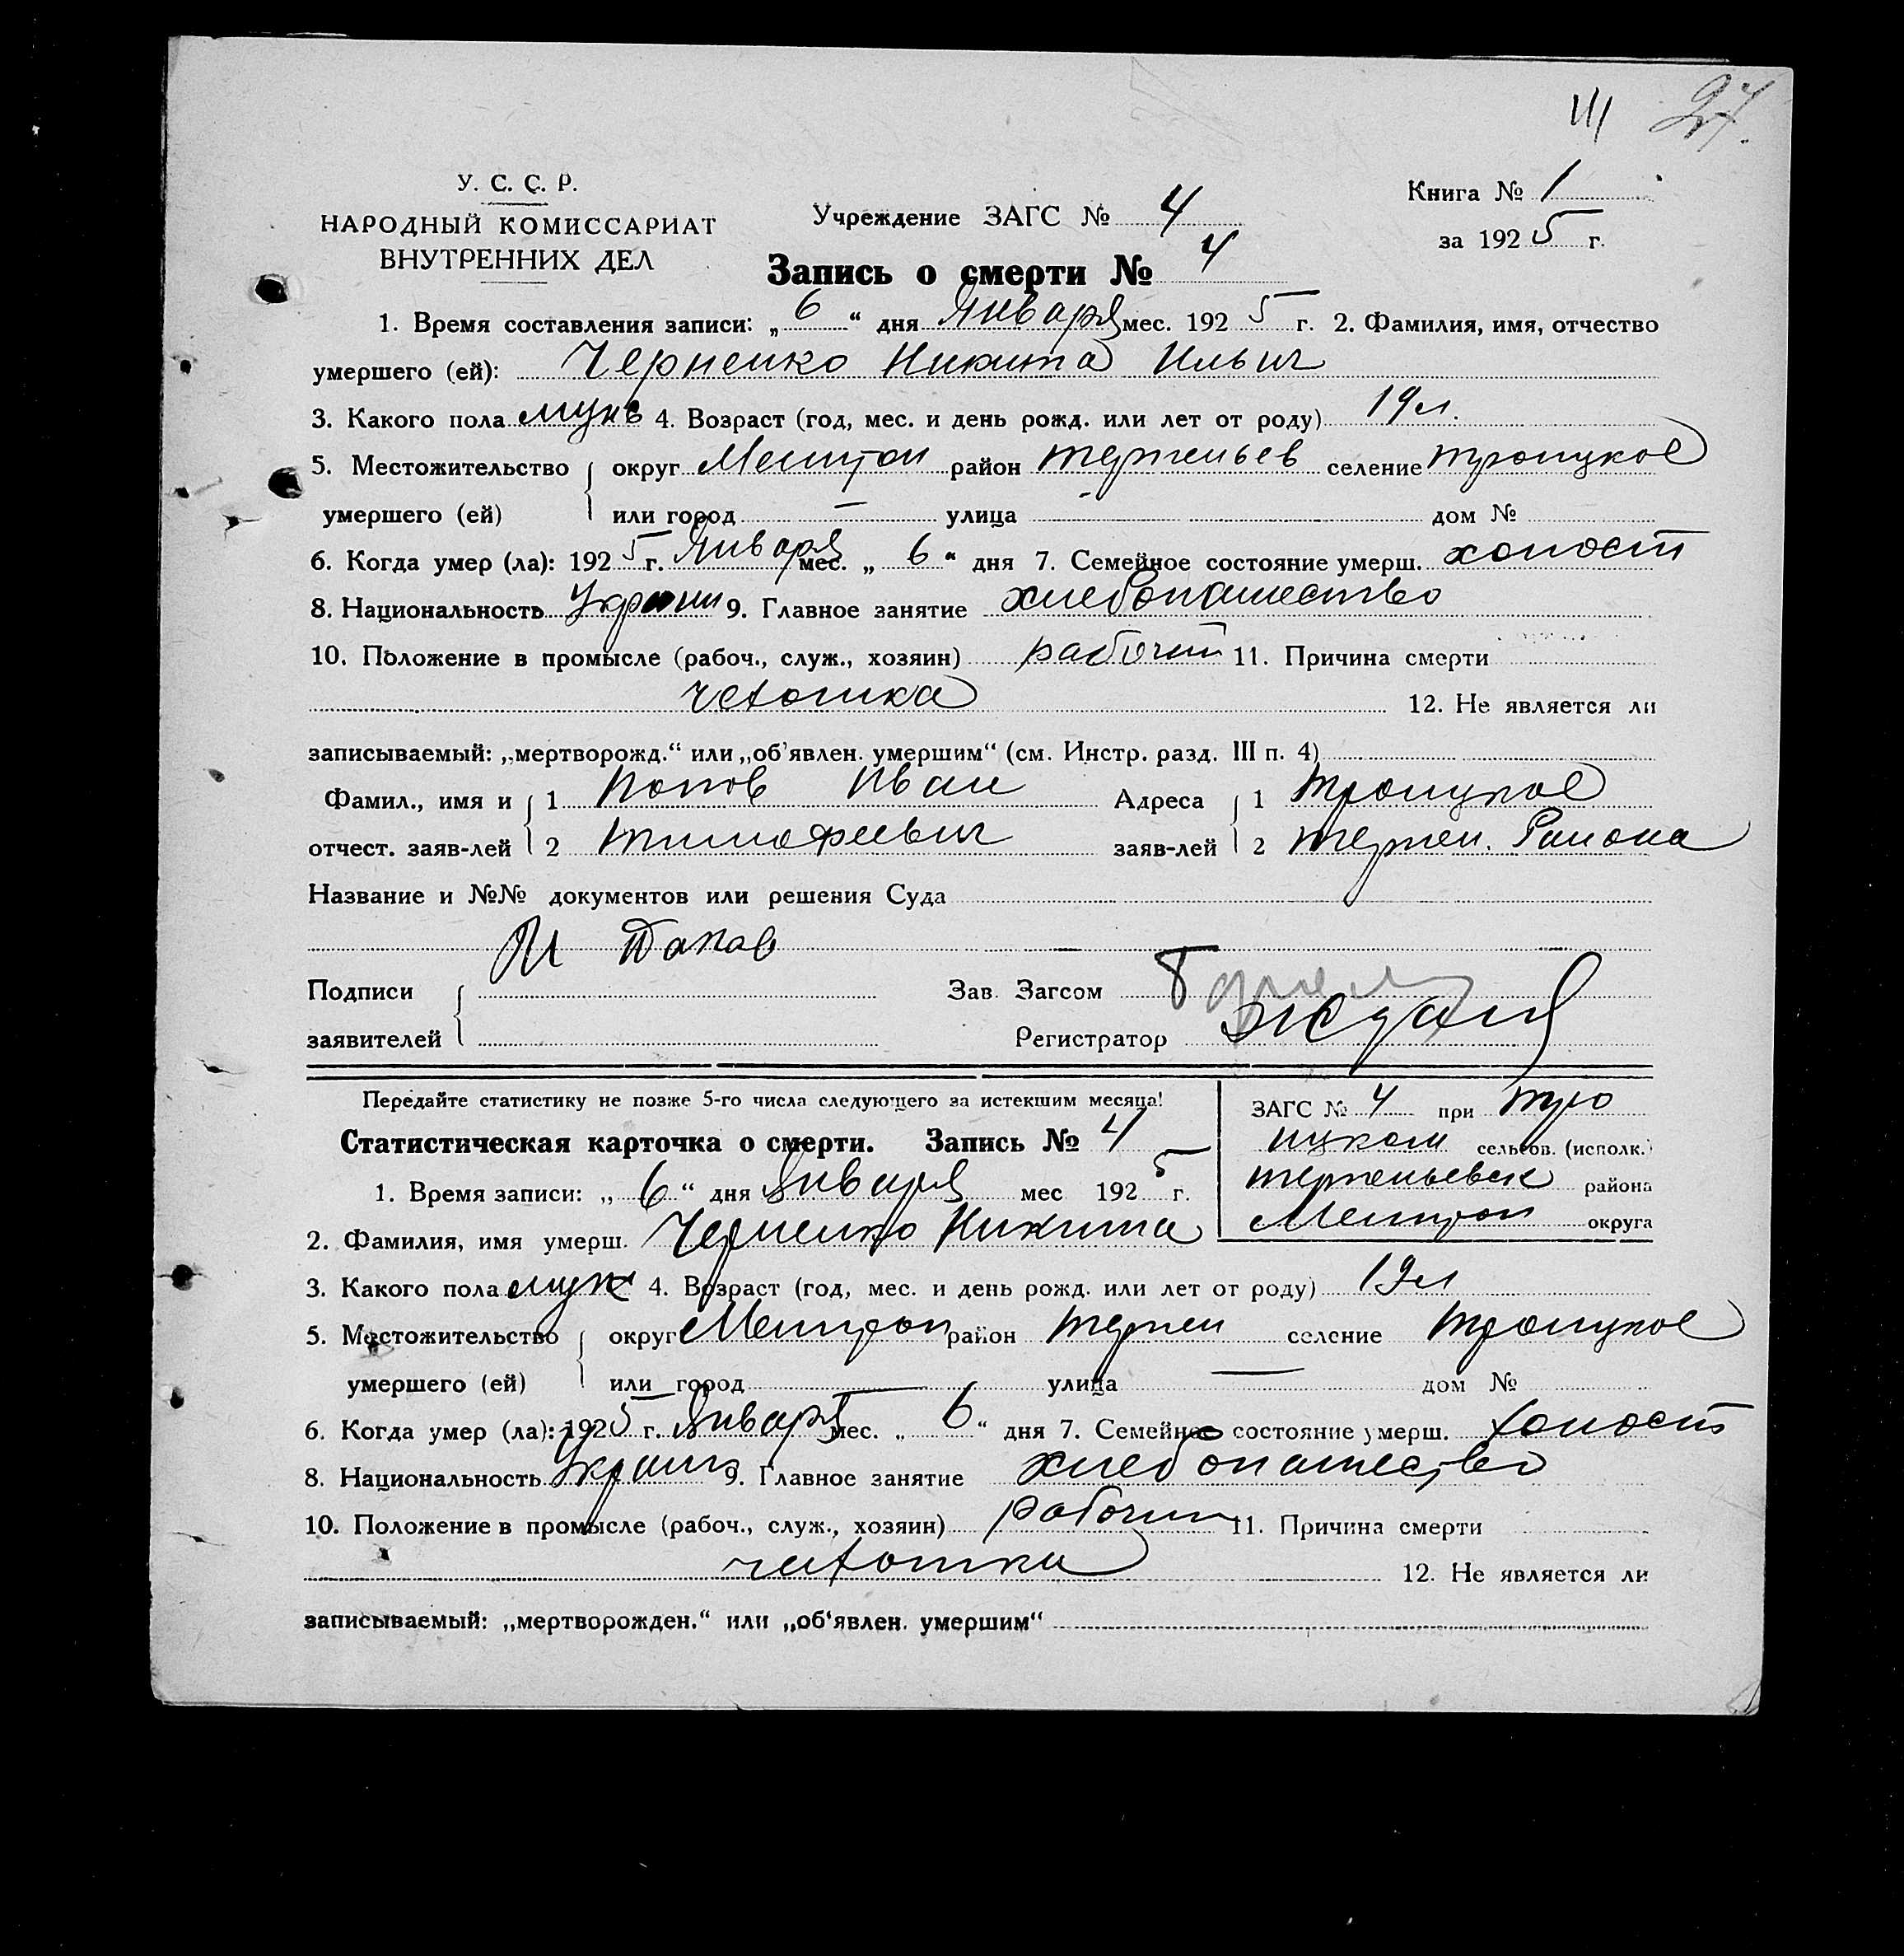 III 27.
У. С. С. Р.
НАРОДНЫЙ КОМИССАРИАТ
ВНУТРЕННИХ ДЕЛ
Учреждение ЗАГС № 4
Книга № 1
за 1925 г.
Запись о смерти № 4
1. Время составления записи: „6“ дня Января мес. 1925 г. 2. Фамилия, имя, отчество
умершего (ей): Черненко Никита Ильич
3. Какого пола муж 4. Возраст (год, мес. и день рожд. или лет от роду) 19 л.
5. Местожительство округ Мелитоп район терпеньев селение троицкое
умершего (ей) или город — улица - дом №
6. Когда умер (ла): 1925 г. Января мес. „6“ дня 7. Семейное состояние умерш. холост
8. Национальность Украин 9. Главное занятие хлебопашество
10. Положение в промысле (рабоч., служ., хозяин) рабочий 11. Причина смерти
чехотка 12. Не является ли
записываемый: „мертворожд.“ или „об'явлен. умершим“ (см. Инстр. разд. III п. 4)
Фамил., имя и 1 Попов Иван Адреса 1 троицкое
отчест. заяв-лей 2 тимофеевич заяв-лей 2 терпен. Района
Название и №№ документов или решения Суда
И Попов
Подписи Зав. Загсом
заявителей Регистратор
Передайте статистику не позже 5-го числа следующего за истекшим месяца!
Статистическая карточка о смерти. Запись № 4
ЗАГС № 4 при тро
ицком сельсов. (исполк.)
терпеньевск района
Мелитоп округа
1. Время записи: „6“ дня Января мес 1925 г.
2. Фамилия, имя умерш. Черненко Никита
3. Какого пола муж 4. Возраст (год, мес. и день рожд. или лет от роду) 19 л
5. Местожительство округ Мелитоп район терпен селение троицкое
умершего (ей) или город улица — дом №
6. Когда умер (ла): 1925 г. Января мес. „6“ дня 7. Семейное состояние умерш. холост
8. Национальность Украин 9. Главное занятие хлебопашество
10. Положение в промысле (рабоч., служ., хозяин) рабочий 11. Причина смерти
чехотка 12. Не является ли
записываемый: „мертворожден.“ или „об'явлен. умершим“